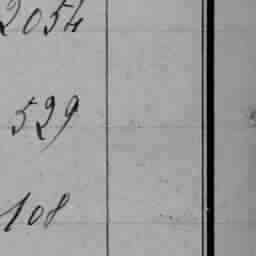 2054
529
108